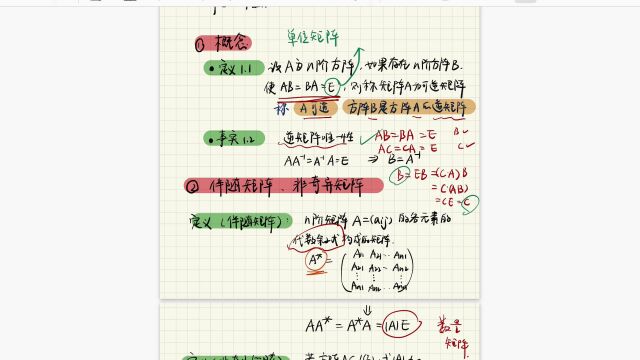 ① 概念
单位矩阵
• 定义1.1 设A为n阶方阵，如果存在n阶方阵B.
使 AB = BA = E，则称矩阵A为可逆矩阵
称 A可逆 方阵B是方阵A的逆矩阵
• 事实1.2 逆矩阵唯一性 ✓
AB=BA = E B✓
AC=CA = E C✓
AA⁻¹=A⁻¹A=E ⇒ B=A⁻¹
B = EB =(CA)B
=C(AB)
=CE=C
② 伴随矩阵、非奇异矩阵
定义(伴随矩阵)： n阶矩阵 A=(aij) 的各元素的
代数余子式构成的矩阵.
A* =
A11 A21 … An1
A12 A22 … An2
A1n A2n … Ann
⇓
AA* = A*A = |A|E 数量
矩阵.